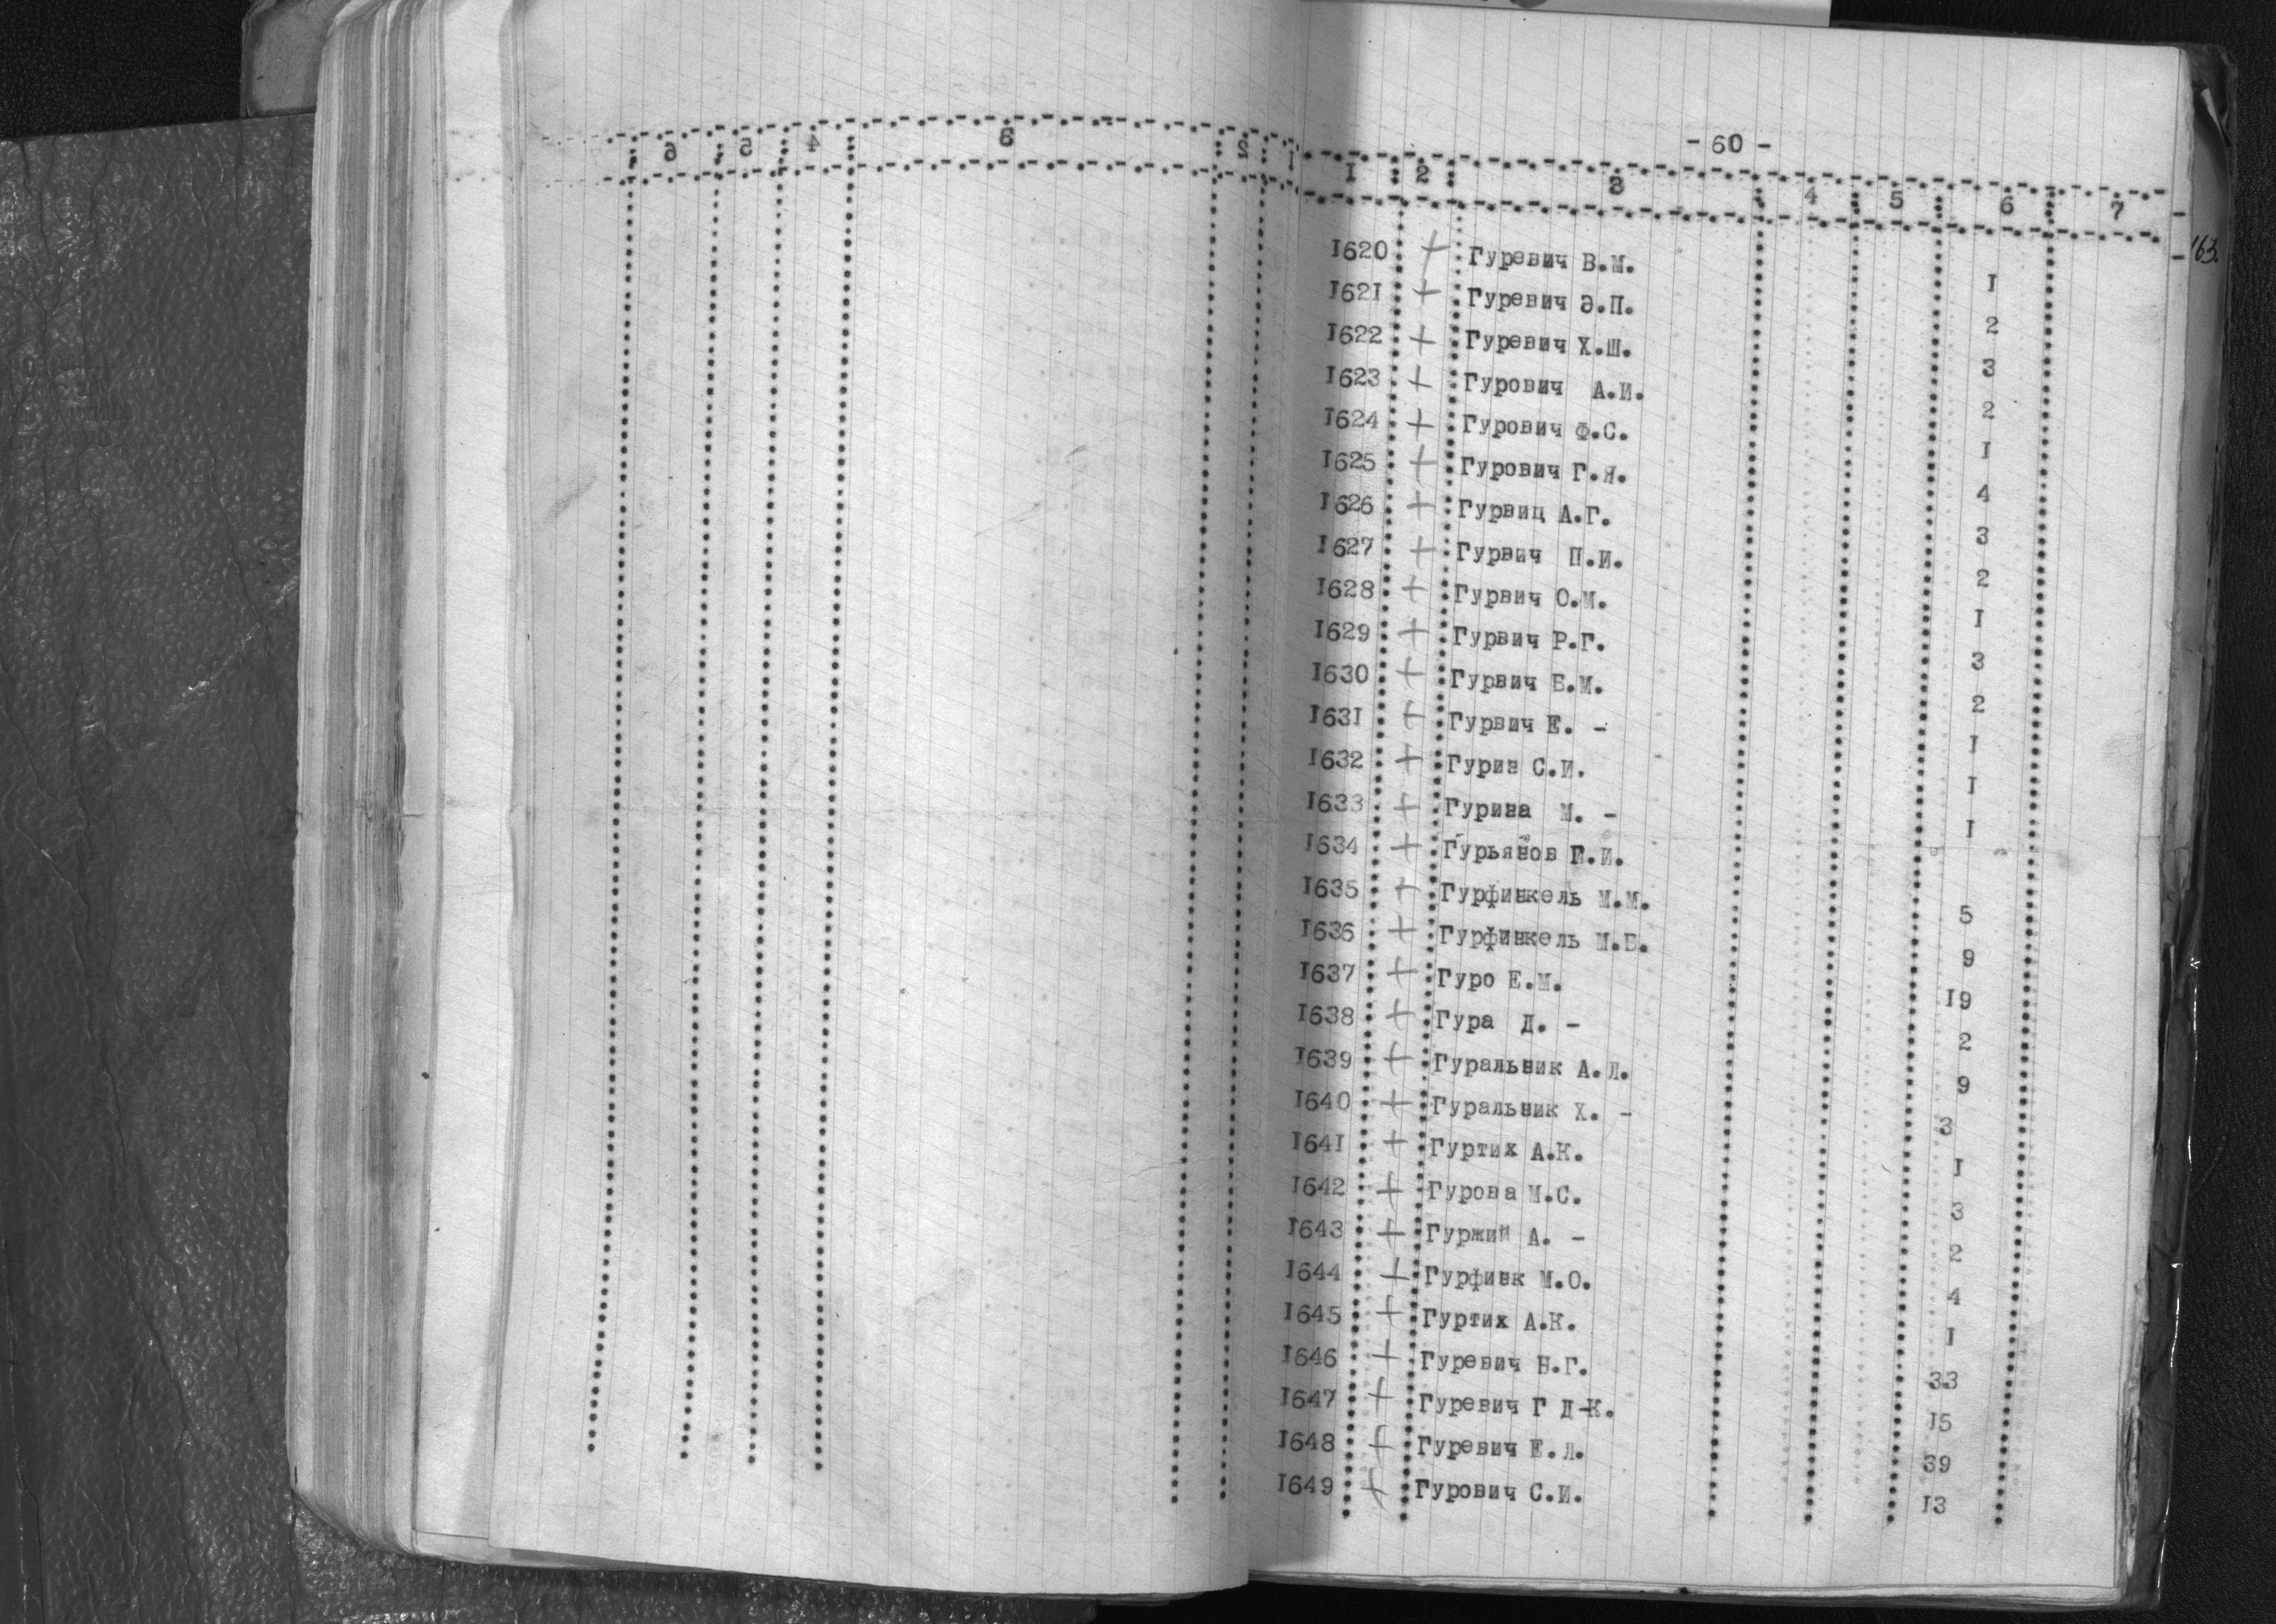 - 60 -
I 2 3 4 5 6 7
163.
I620 + Гуревич В.М. I
I62I + Гуревич Э.П. 2
I622 + Гуревич Х.Ш. 3
I623 + Гурович А.И. 2
I624 + Гурович Ф.С. I
I625 + Гурович Г.Я. 4
I626 + Гурвиц А.Г. 3
I627 + Гурвич П.И. 2
I628 + Гурвич О.М. I
I629 + Гурвич Р.Г. 3
I630 + Гурвич Б.М. 2
I63I + Гурвич Е. - I
I632 + Гурин С.И. I
I633 + Гурина М. - I
I634 + Гурьянов Г.И.
I635 + Гурфинкель М.М. 5
I636 + Гурфинкель М.Б. 9
I637 + Гуро Е.М. I9
I638 + Гура Д. - 2
I639 + Гуральник А.Л. 9
I640 + Гуральник Х. - 3
I64I + Гуртих А.К. I
I642 + Гурова М.С. 3
I643 + Гуржий А. - 2
I644 + Гурфинк М.О. 4
I645 + Гуртих А.К. I
I646 + Гуревич Н.Г. 33
I647 + Гуревич Г Д-К. I5
I648 + Гуревич Е.Л. 39
I649 + Гурович С.И. I3